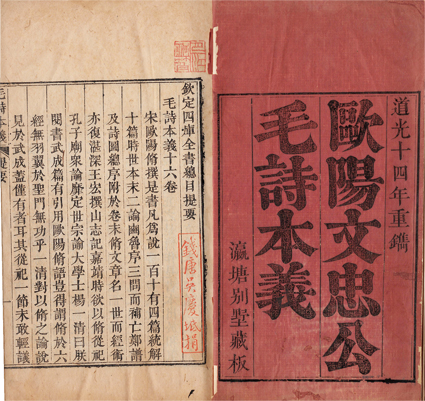 道光十四年重鐫
歐陽文忠公
毛詩本義
瀛塘别墅藏板
欽定四庫全書總目提要
毛詩本義十六卷
錢唐吳慶坻捐
宋歐陽脩撰是書凡爲說一百十有四篇統解
十篇時世本末二論豳魯序三問而補亡鄭譜
及詩圖總序附於卷末脩文章名一世而經術
亦復湛深王宏撰山志記嘉靖時欲以脩從祀
孔子廟衆論靡定世宗諭大學士楊一清曰朕
閱書武成篇有引用歐陽脩語豈得謂脩於六
經無羽翼於聖門無功乎一清對以脩之論說
見於武成蓋僅有者耳其從祀一節未敢輕議
毛詩本義 提要